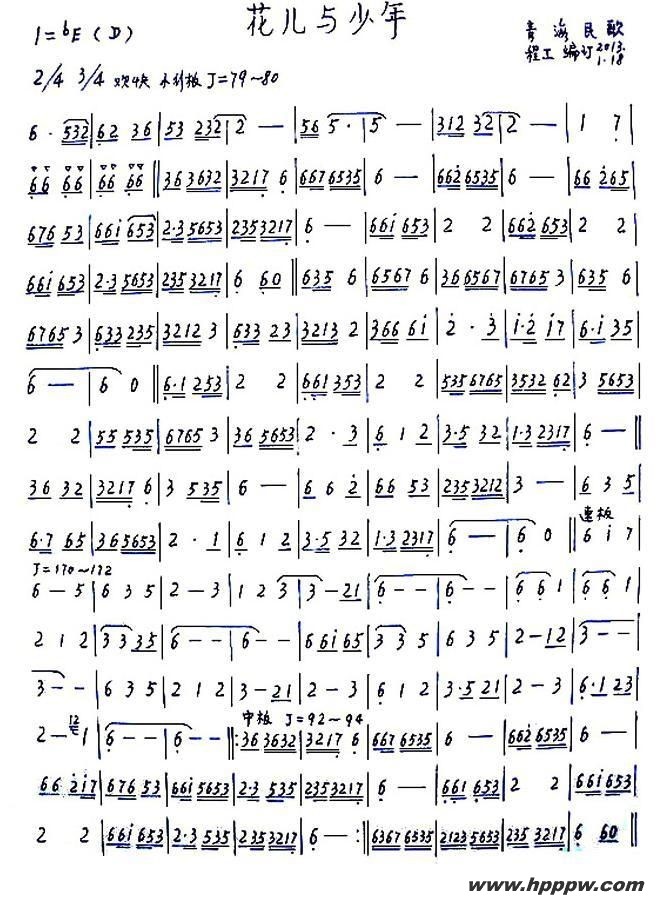 花儿与少年
1=ᵇE(D)
青海民歌
程工 编订 2013.1.18
2/4 3/4 欢快 小行板 J=79~80
6·532|62 36|53 232|2 —|56 5·|5 —|312 32|2 —|1 7|
66 66|66 66‖363632|3217 6|667 6535|6 —|662 6535|6 —|66 265|
676 53|661 653|2·3 5653|235 3217|6 —|661 653|2 2|662 653|2 2|
661 653|2·3 5653|235 3217|6 60‖635 6|6567 6|366567|6765 3|635 6|
6765 3|633 235|3212 3|633 23|3213 2|366 61|2 · 3|1·2 17|6·1 35|
6 —|6 0‖6·1 253|2 2|661 353|2 2|535 6765|3532 62|3 5653|
2 2|55 535|6765 3|36 5653|2 · 3|6 1 2|3·5 32|1·3 2317|6 —‖
36 32|3217 6|3 535|6 —|6 6 2|66 53|235 3212|3 —|6 3 5|
6·7 65|365653|2 · 1|6 1 2|3·5 32|1·3 2317|6 —|6 0‖速板 6 1 7|
J=170~172
6 — 5|6 3 5|2 — 3|1 2 3|3 — 21|6 — —|6 — —|6 6 1|6 6 1|
2 1 2|3 3 35|6 — —|6 — —|6 61 65|3 3 5|6 3 5|2 — 12|3 — —|
3 — —|6 3 5|2 1 2|3 — 21|2 — 3|6 1 2|3·5 21|2 — 3|6·1 23|
中板 J=92~94
2 — 12 1|6 — —|6 — —‖:36 3632|3217 6|667 6535|6 —|662 6535|6 —|
66 217|676 53|661 5653|2·3 535|235 3217|6 —|661 653|2 2|661 653|
2 2|661 653|2·3 535|235 3217|6 —:‖6367 6535|2123 5653|235 3217|6 60‖
www.hpppw.com